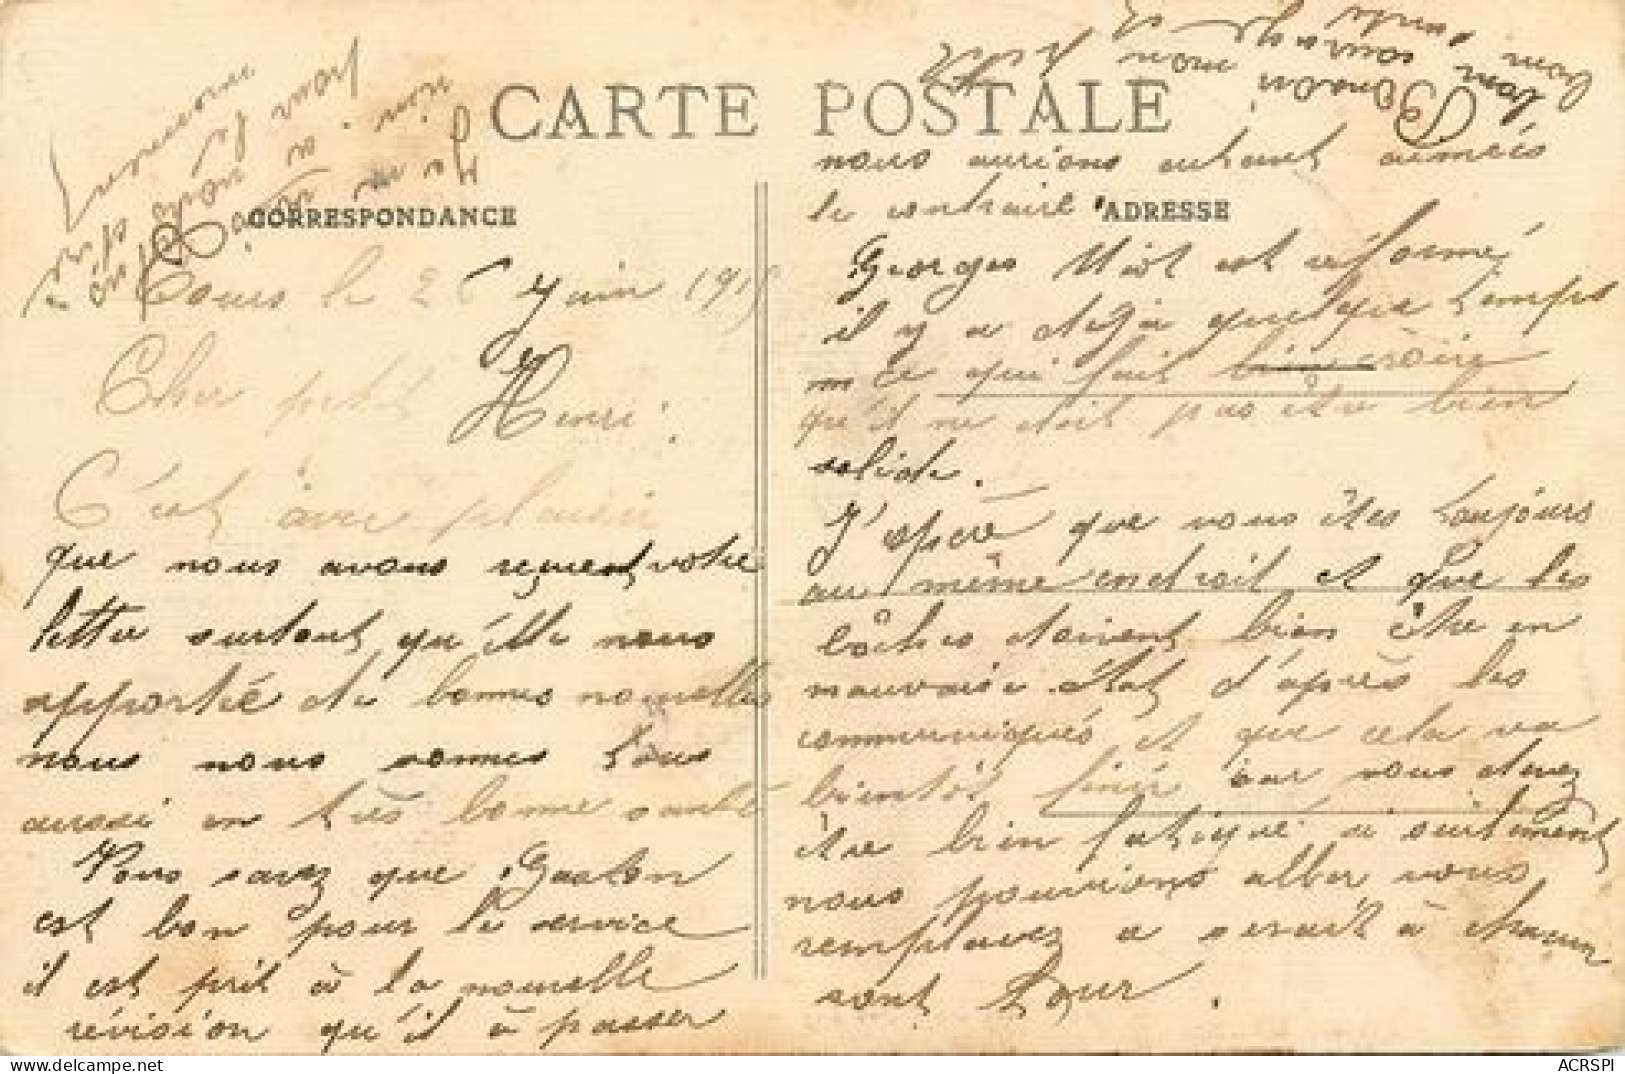 CARTE POSTALE
CORRESPONDANCE
Cours le 26 Juin 1915
Cher petit Henri.
C'est avec plaisir
que nous avons reçu votre
lettre surtout qu'elle nous
apporté de bonnes nouvelles
nous nous sommes tous
aussi en très bonne santé
Vous savez que Gaston
est bon pour le service
il est prit à la nouvelle
révision qu'il à passer
nous aurions autant aimés
le contraire
ADRESSE
Georges est réformé
il y a déjà quelque temps
ce qui fait croire
qu'il ne doit pas être bien
solide.
J'espère que vous êtes toujours
au même endroit et que les
bôches doivent bien être en
mauvaise état d'après les
communiqués et que cela va
bientôt finir car vous devez
être bien fatigué si seulement
nous pouvions aller vous
remplacez a serait à chacun
sont tour.
ACRSPI